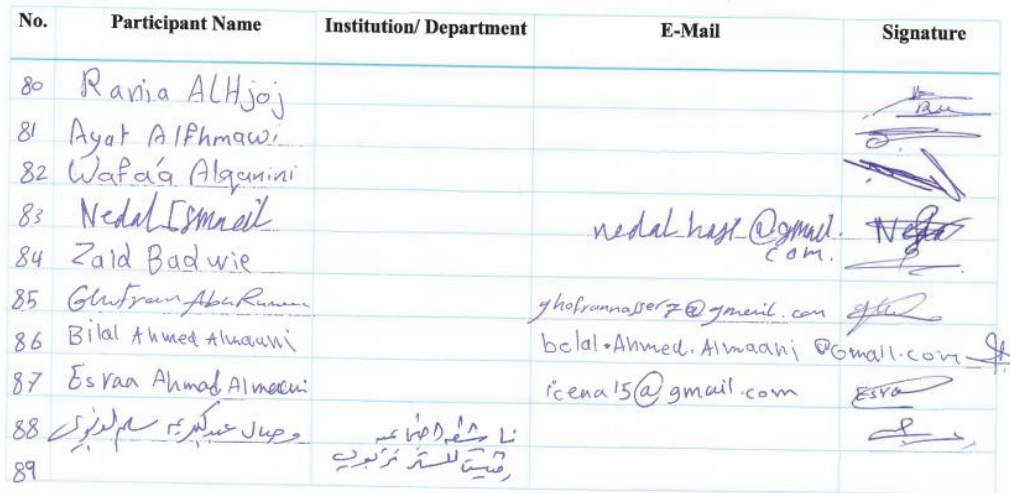 No. Participant Name Institution/ Department E-Mail Signature
80 Rania ALHjoj
81 Ayat Alfhmawi
82 Wafa'a Alqunini
83 Nedal Ismaeil nedal_hase_@gmail.
com.
84 Zaid Badwie
85 Ghufran AbuRumman ghofrannasser7@gmail.com
86 Bilal Ahmed Almaani belal.Ahmed.Almaani@Gmail.com
87 Esraa Ahmad Almaani icena15@gmail.com Esra
88 وصال عبدالكريم ناشطة اجتماعية
89